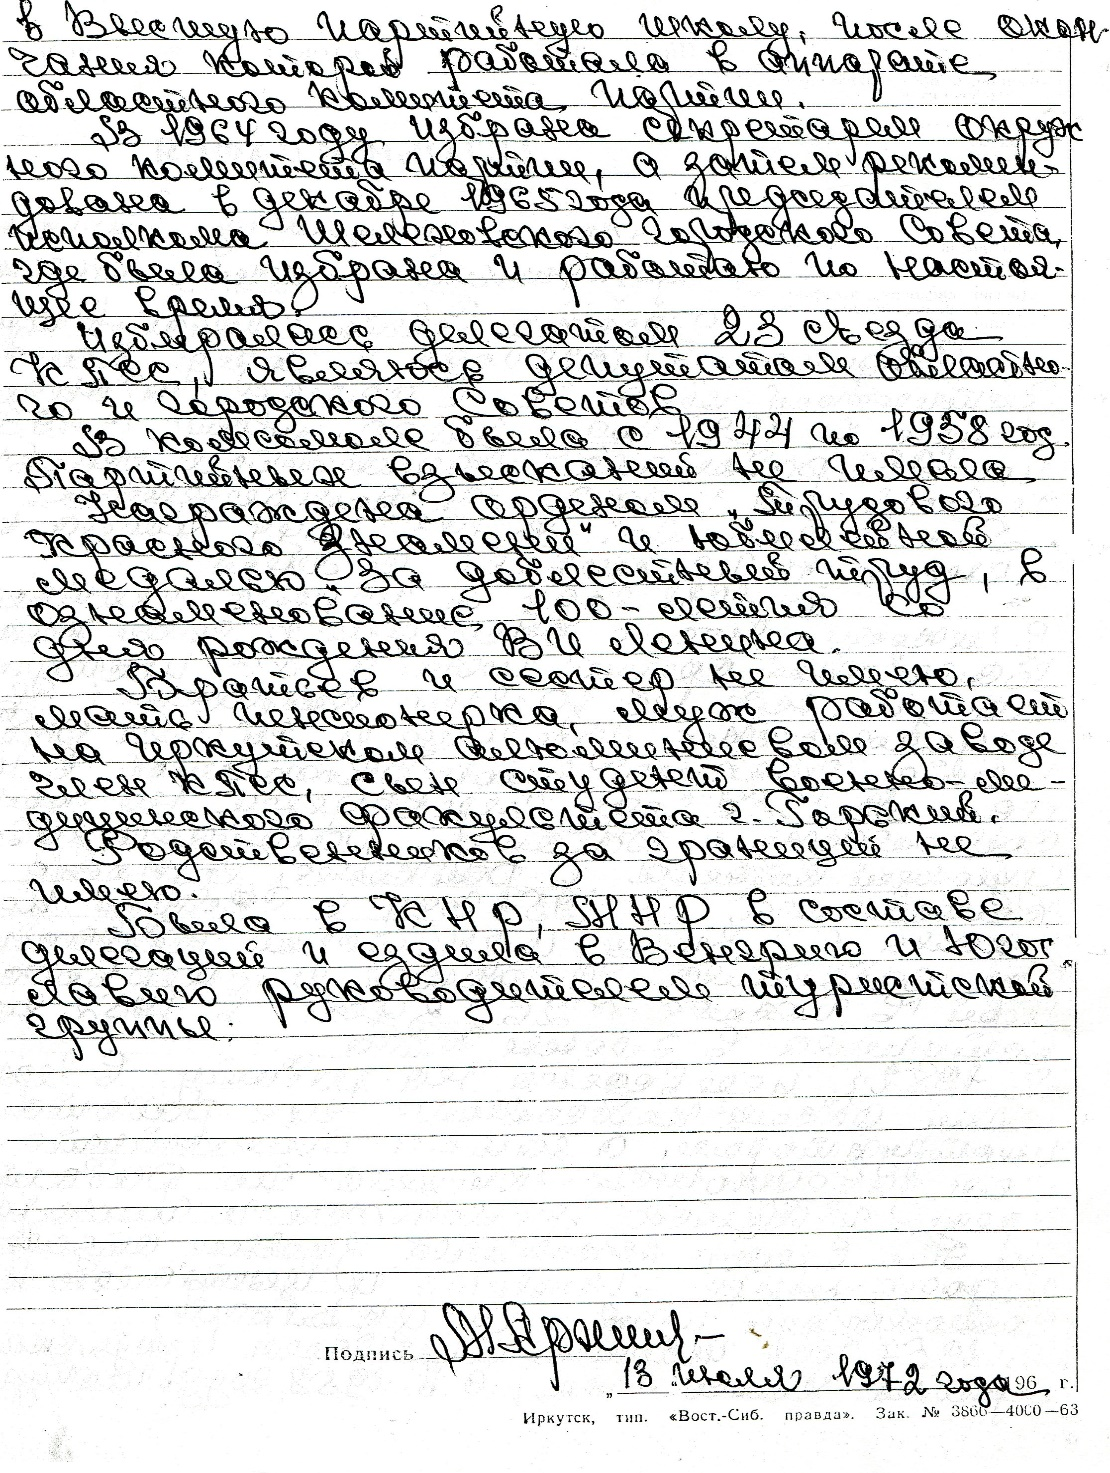 в Высшую партийную школу, после окон-
чания которой работала в аппарате
областного комитета партии.
В 1964 году избрана секретарем окруж
ного комитета партии, а затем рекомен-
дована в декабре 1965 года председателем
исполкома Шелеховского городского Совета,
где была избрана и работаю по настоя-
щее время.
Избиралась делегатом 23 съезда
КПСС, являюсь депутатом областно-
го и городского Советов
В комсомоле была с 1944 по 1958 год.
Партийных взысканий не имела
Награждена орденом „Трудового
Красного Знамени" и юбилейной
медалью „За доблестный труд, в
ознаменование 100-летия со
дня рождения В И Ленина.
Братьев и сестер не имею,
мать пенсионерка, муж работает
на Иркутском алюминиевом заводе
член КПСС, сын студент военно-ме-
дицинского факультета г. Горький.
Родственников за границей не
имею.
Была в КНР, МНР в составе
делегаций и ездила в Венгрию и Югос
лавию руководителем туристской
группы.
Подпись
„13 июля 1972 года 196 г.
Иркутск, тип. «Вост.-Сиб. правда». Зак. № 3866—4000—63